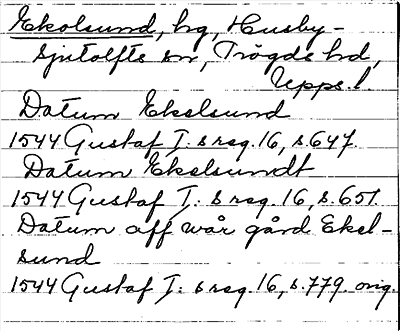 Ekolsund, hg, Husby-
Sjutolfts sn, Trögds hd,
Upps. l.
Datum Ekelsund
1544 Gustaf I:s reg. 16, s. 647.
Datum Ekelsundt
1544 Gustaf I:s reg. 16, s. 651.
Datum aff wår gård Ekel-
sund
1544 Gustaf I:s reg. 16, s. 779. orig.